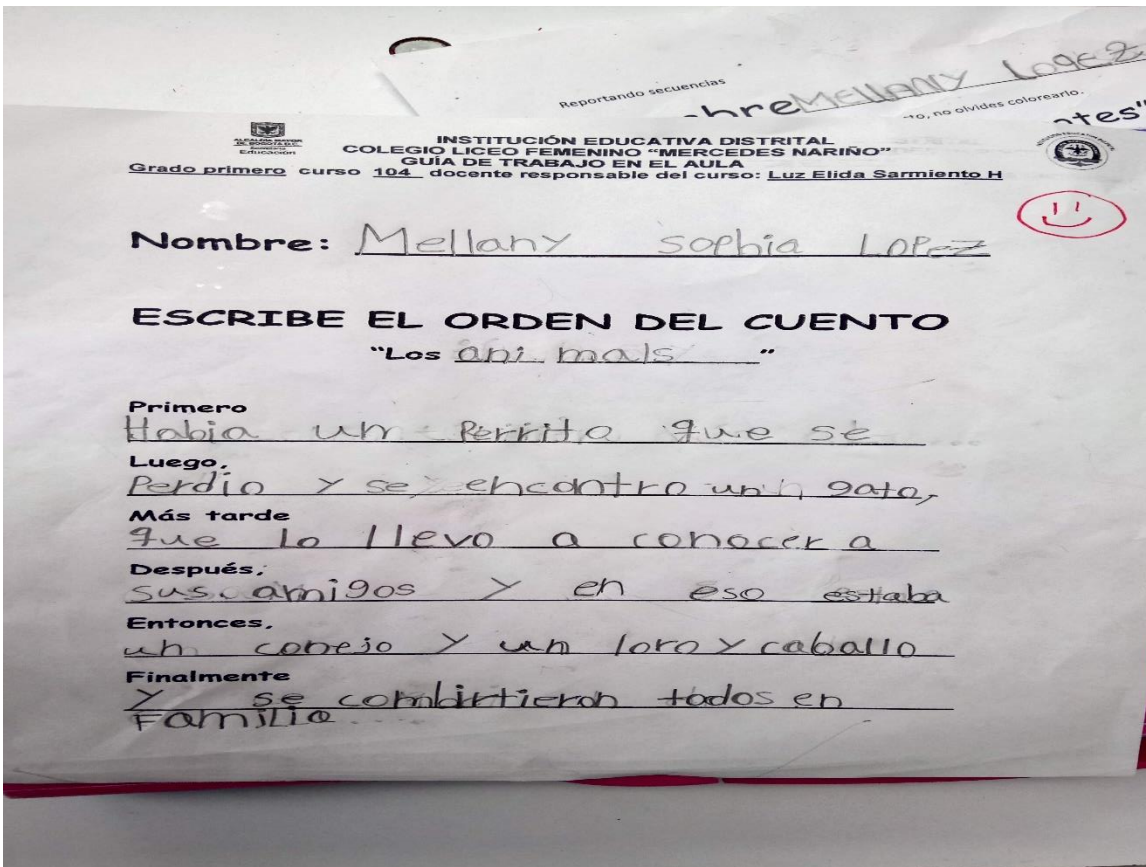 Reportando secuencias
bre MELLANY LOPEZ
to, no olvides colorearlo.
ntes"
ALCALDÍA MAYOR
DE BOGOTÁ D.C.
Educación
INSTITUCIÓN EDUCATIVA DISTRITAL
COLEGIO LICEO FEMENINO “MERCEDES NARIÑO”
GUÍA DE TRABAJO EN EL AULA
Grado primero curso 104 docente responsable del curso: Luz Elida Sarmiento H
Nombre: Mellany sophia LOPez
ESCRIBE EL ORDEN DEL CUENTO
“Los ani mals ”
Primero
Habia un Perrito que se
Luego,
Perdio y se encontro un gato,
Más tarde
que lo llevo a conocer a
Después,
sus amigos y en eso estaba
Entonces,
un conejo y un loro y caballo
Finalmente
y se combirtieron todos en
Familia